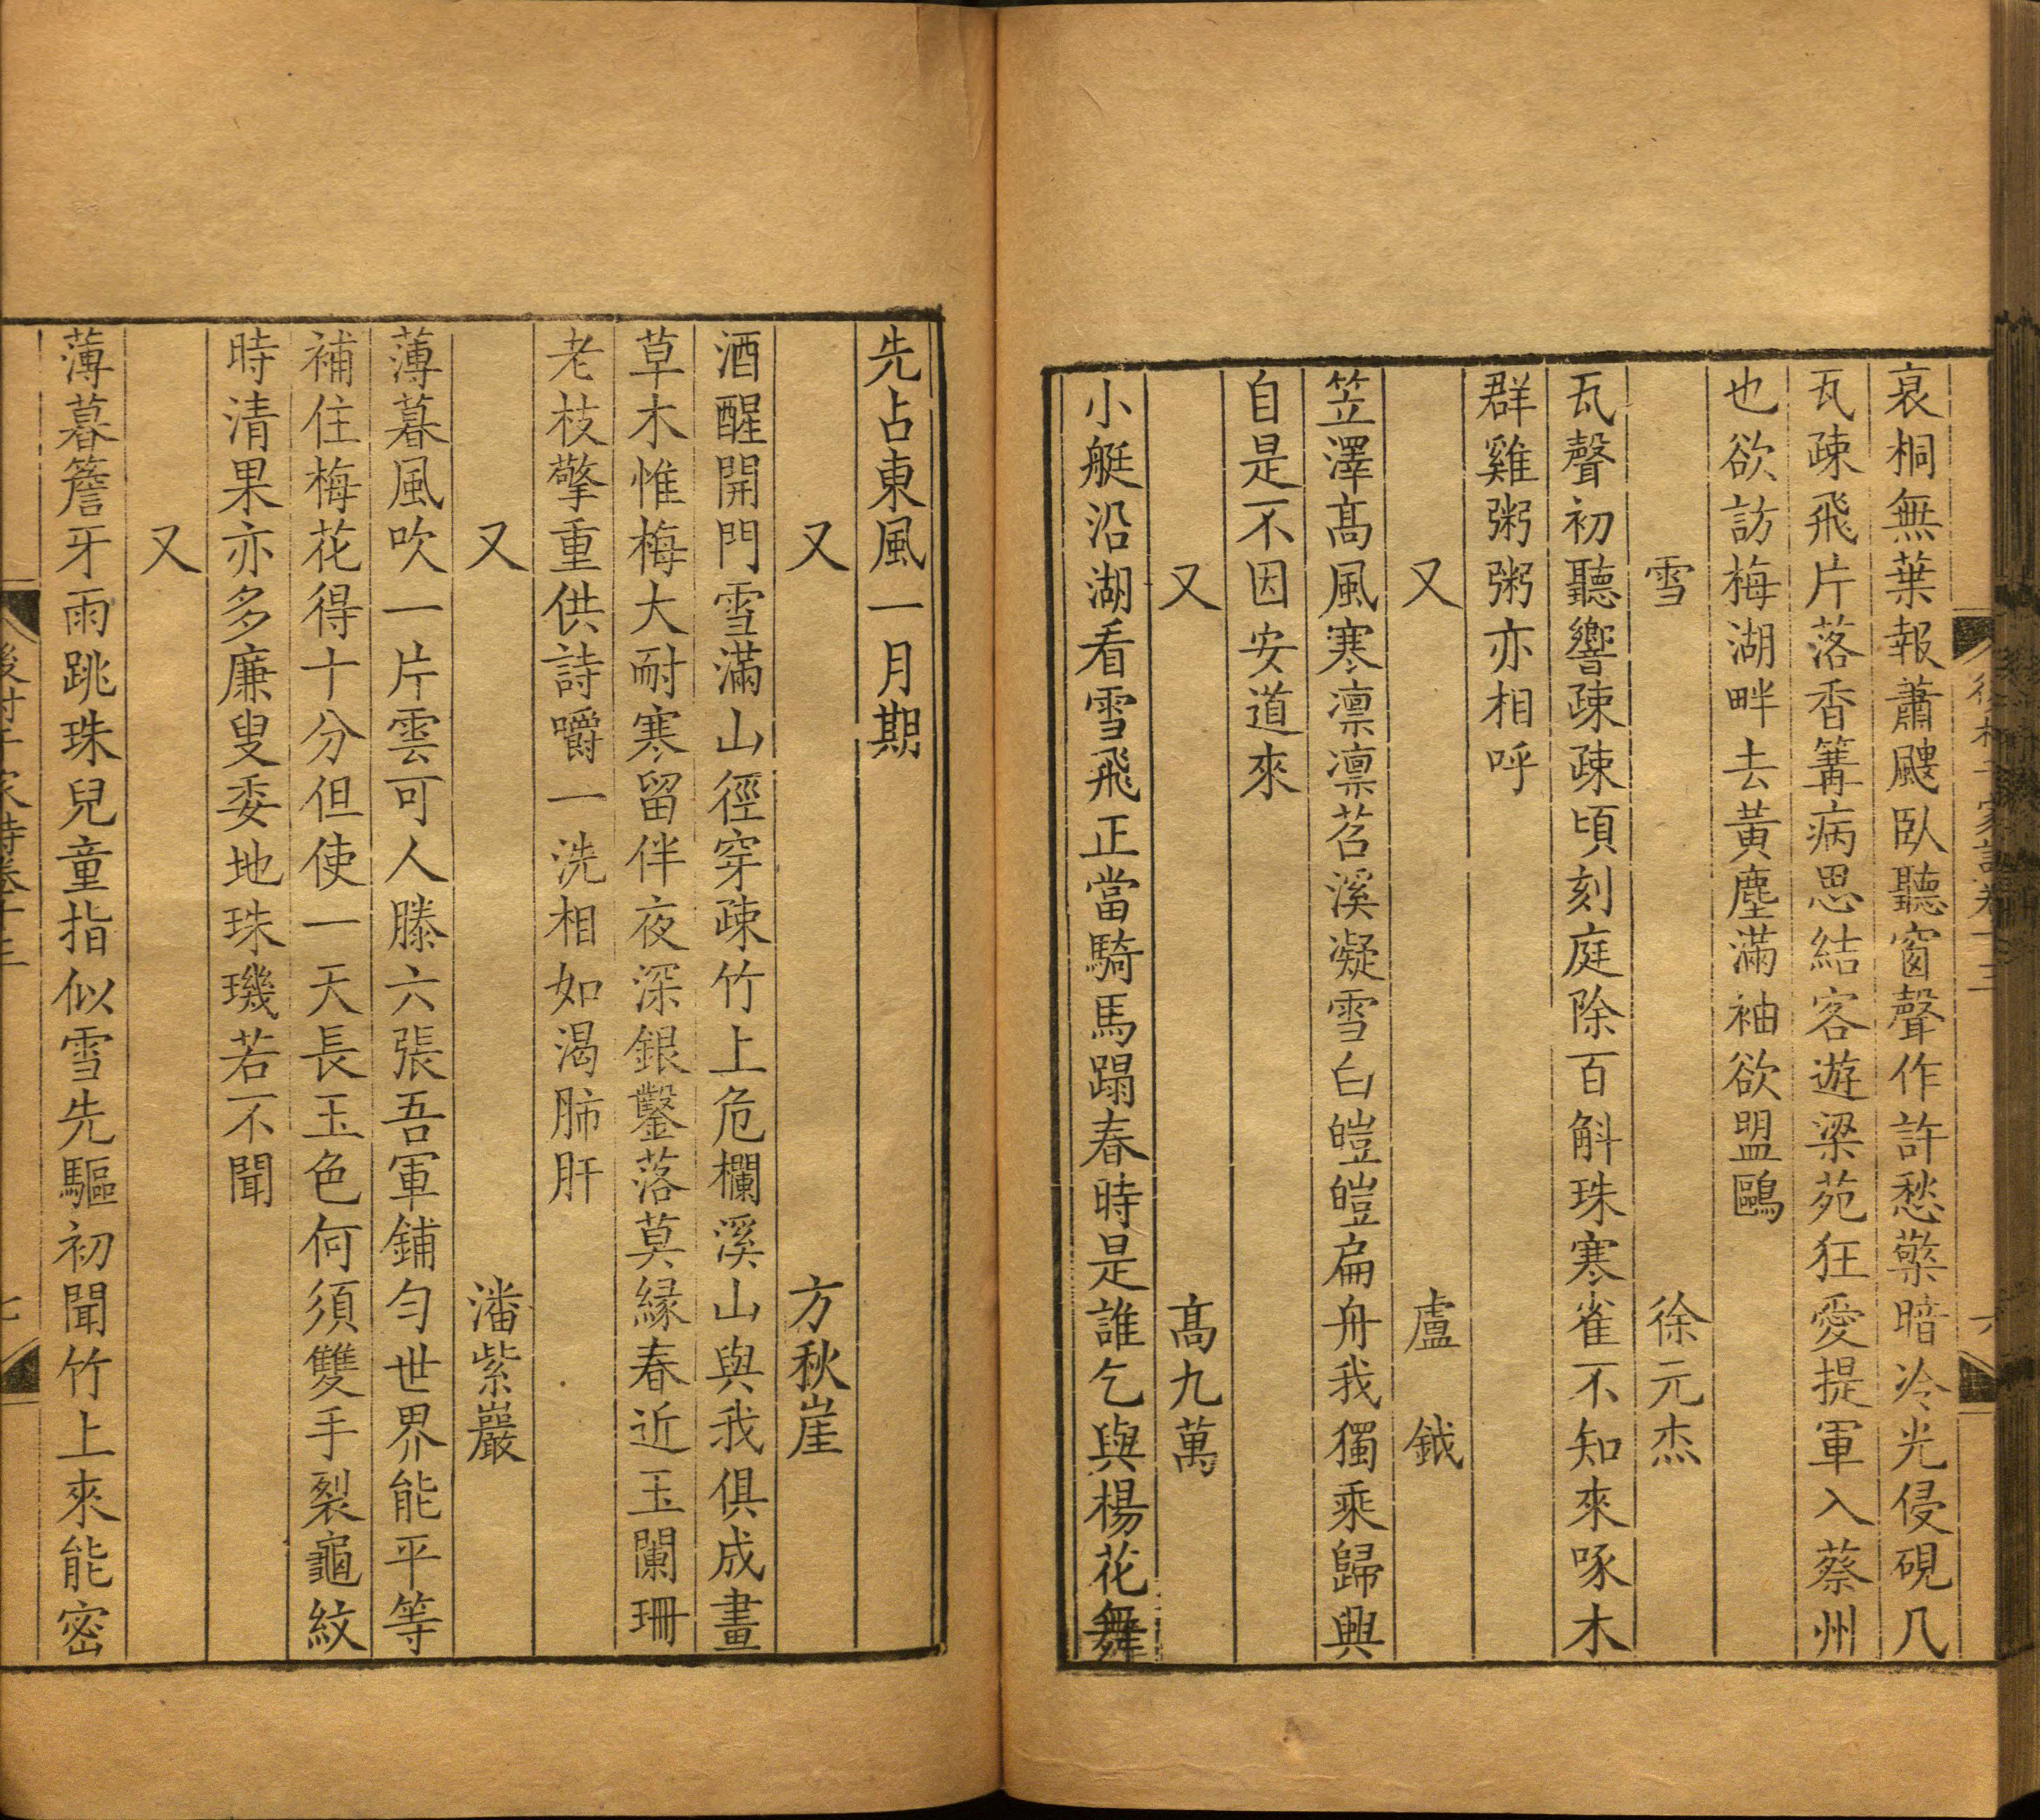 哀桐無葉報蕭颼臥聽窗聲作許愁檠暗冷光侵硯几
瓦疎飛片落香篝病思結客遊梁苑狂愛提軍入蔡州
也欲訪梅湖畔去黃塵滿袖欲盟鷗
雪 徐元杰
瓦聲初聽響疎疎頃刻庭除百斛珠寒雀不知來啄木
群雞粥粥亦相呼
又 盧鉞
笠澤髙風寒凛凛苕溪凝雪白皚皚扁舟我獨乘歸興
自是不因安道來
又 髙九萬
小艇沿湖看雪飛正當騎馬蹋春時是誰乞與楊花舞
先占東風一月期
又 方秋崖
酒醒開門雪滿山徑穿疎竹上危欄溪山與我俱成畫
草木惟梅大耐寒留伴夜深銀鑿落莫緣春近玉闌珊
老枝擎重供詩嚼一洗相如渴肺肝
又 潘紫巖
薄暮風吹一片雲可人滕六張吾軍鋪勻世界能平等
補住梅花得十分但使一天長玉色何須雙手裂龜紋
時清果亦多廉叟委地珠璣若不聞
又
薄暮簷牙雨跳珠兒童指似雪先驅初聞竹上來能密